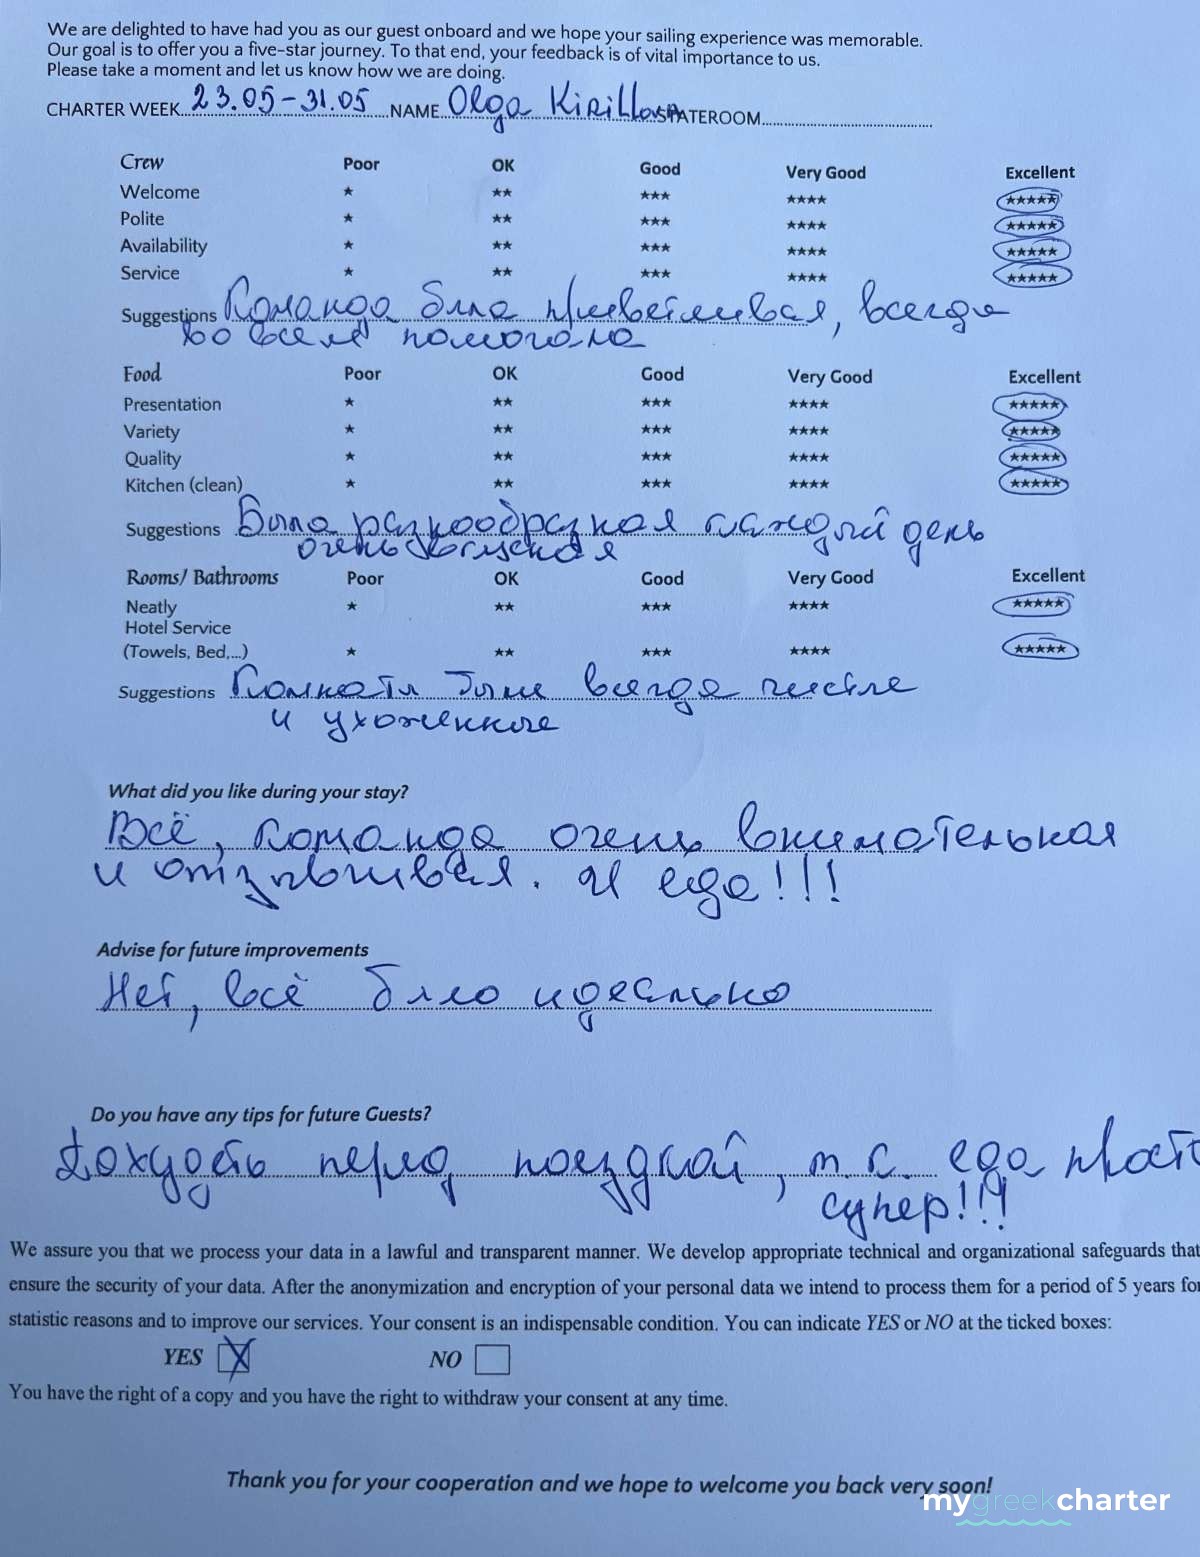 We are delighted to have had you as our guest onboard and we hope your sailing experience was memorable.
Our goal is to offer you a five-star journey. To that end, your feedback is of vital importance to us.
Please take a moment and let us know how we are doing.
CHARTER WEEK 23.05-31.05 NAME Olga Kirillova STATEROOM
Crew Poor OK Good Very Good Excellent
Welcome ★ ★★ ★★★ ★★★★ ★★★★★
Polite ★ ★★ ★★★ ★★★★ ★★★★★
Availability ★ ★★ ★★★ ★★★★ ★★★★★
Service ★ ★★ ★★★ ★★★★ ★★★★★
Suggestions Команда была приветливая, всегда
во всем помогала
Food Poor OK Good Very Good Excellent
Presentation ★ ★★ ★★★ ★★★★ ★★★★★
Variety ★ ★★ ★★★ ★★★★ ★★★★★
Quality ★ ★★ ★★★ ★★★★ ★★★★★
Kitchen (clean) ★ ★★ ★★★ ★★★★ ★★★★★
Suggestions Была разнообразная каждый день
очень вкусная
Rooms/ Bathrooms Poor OK Good Very Good Excellent
Neatly ★ ★★ ★★★ ★★★★ ★★★★★
Hotel Service
(Towels, Bed,...) ★ ★★ ★★★ ★★★★ ★★★★★
Suggestions Комнаты были всегда чистые
и ухоженные
What did you like during your stay?
Всё, команда очень внимательная
и отзывчивая. И еда!!!
Advise for future improvements
Нет, всё было идеально
Do you have any tips for future Guests?
Похудеть перед поездкой, т.к. еда просто
супер!!!
We assure you that we process your data in a lawful and transparent manner. We develop appropriate technical and organizational safeguards that
ensure the security of your data. After the anonymization and encryption of your personal data we intend to process them for a period of 5 years for
statistic reasons and to improve our services. Your consent is an indispensable condition. You can indicate YES or NO at the ticked boxes:
YES X NO
You have the right of a copy and you have the right to withdraw your consent at any time.
Thank you for your cooperation and we hope to welcome you back very soon!
mygreekcharter